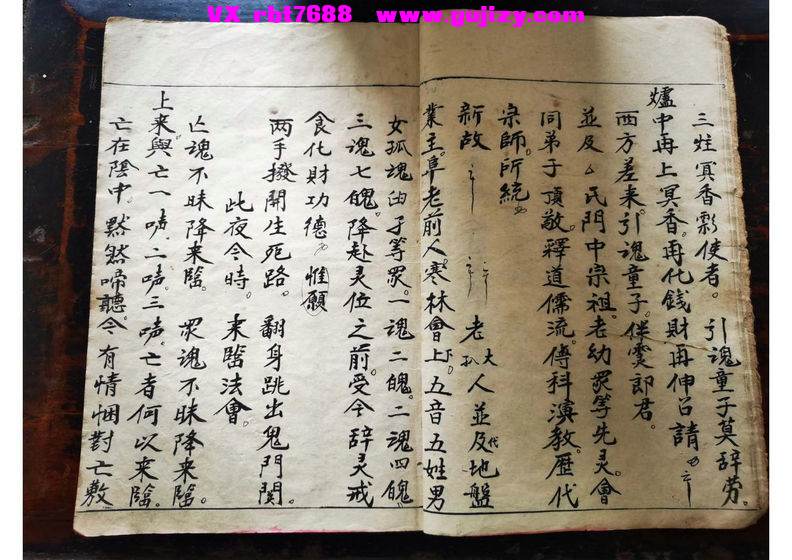 VX rbt7688 www.gujizy.com
三炷冥香彩使者。引魂童子莫辞劳。
爐中再上冥香。再化錢財再伸召請
西方差来引魂童子。伴灵郎君。
並及厶氏門中宗祖。老幼眾等先灵。會
同弟子頂敬。釋道儒流。傳科演教。歷代
宗師。所統
新故 老大孤人並及地代盤
業主。阜老前人。寒林會上下。五音五姓男
女孤魂由子等眾。一魂二魄。二魂四魄
三魂七魄。降赴灵位之前。受今辞灵戒
食化財功德 惟願
两手撥開生死路。翻身跳出鬼門関。
此夜今時。来臨法會。
亡魂不昧降来臨。眾魂不昧降来臨。
上来與亡一啨。二啨。三啨。亡者何以来臨。
亡在陰中。黙然啼聽。今有情悃對亡敷